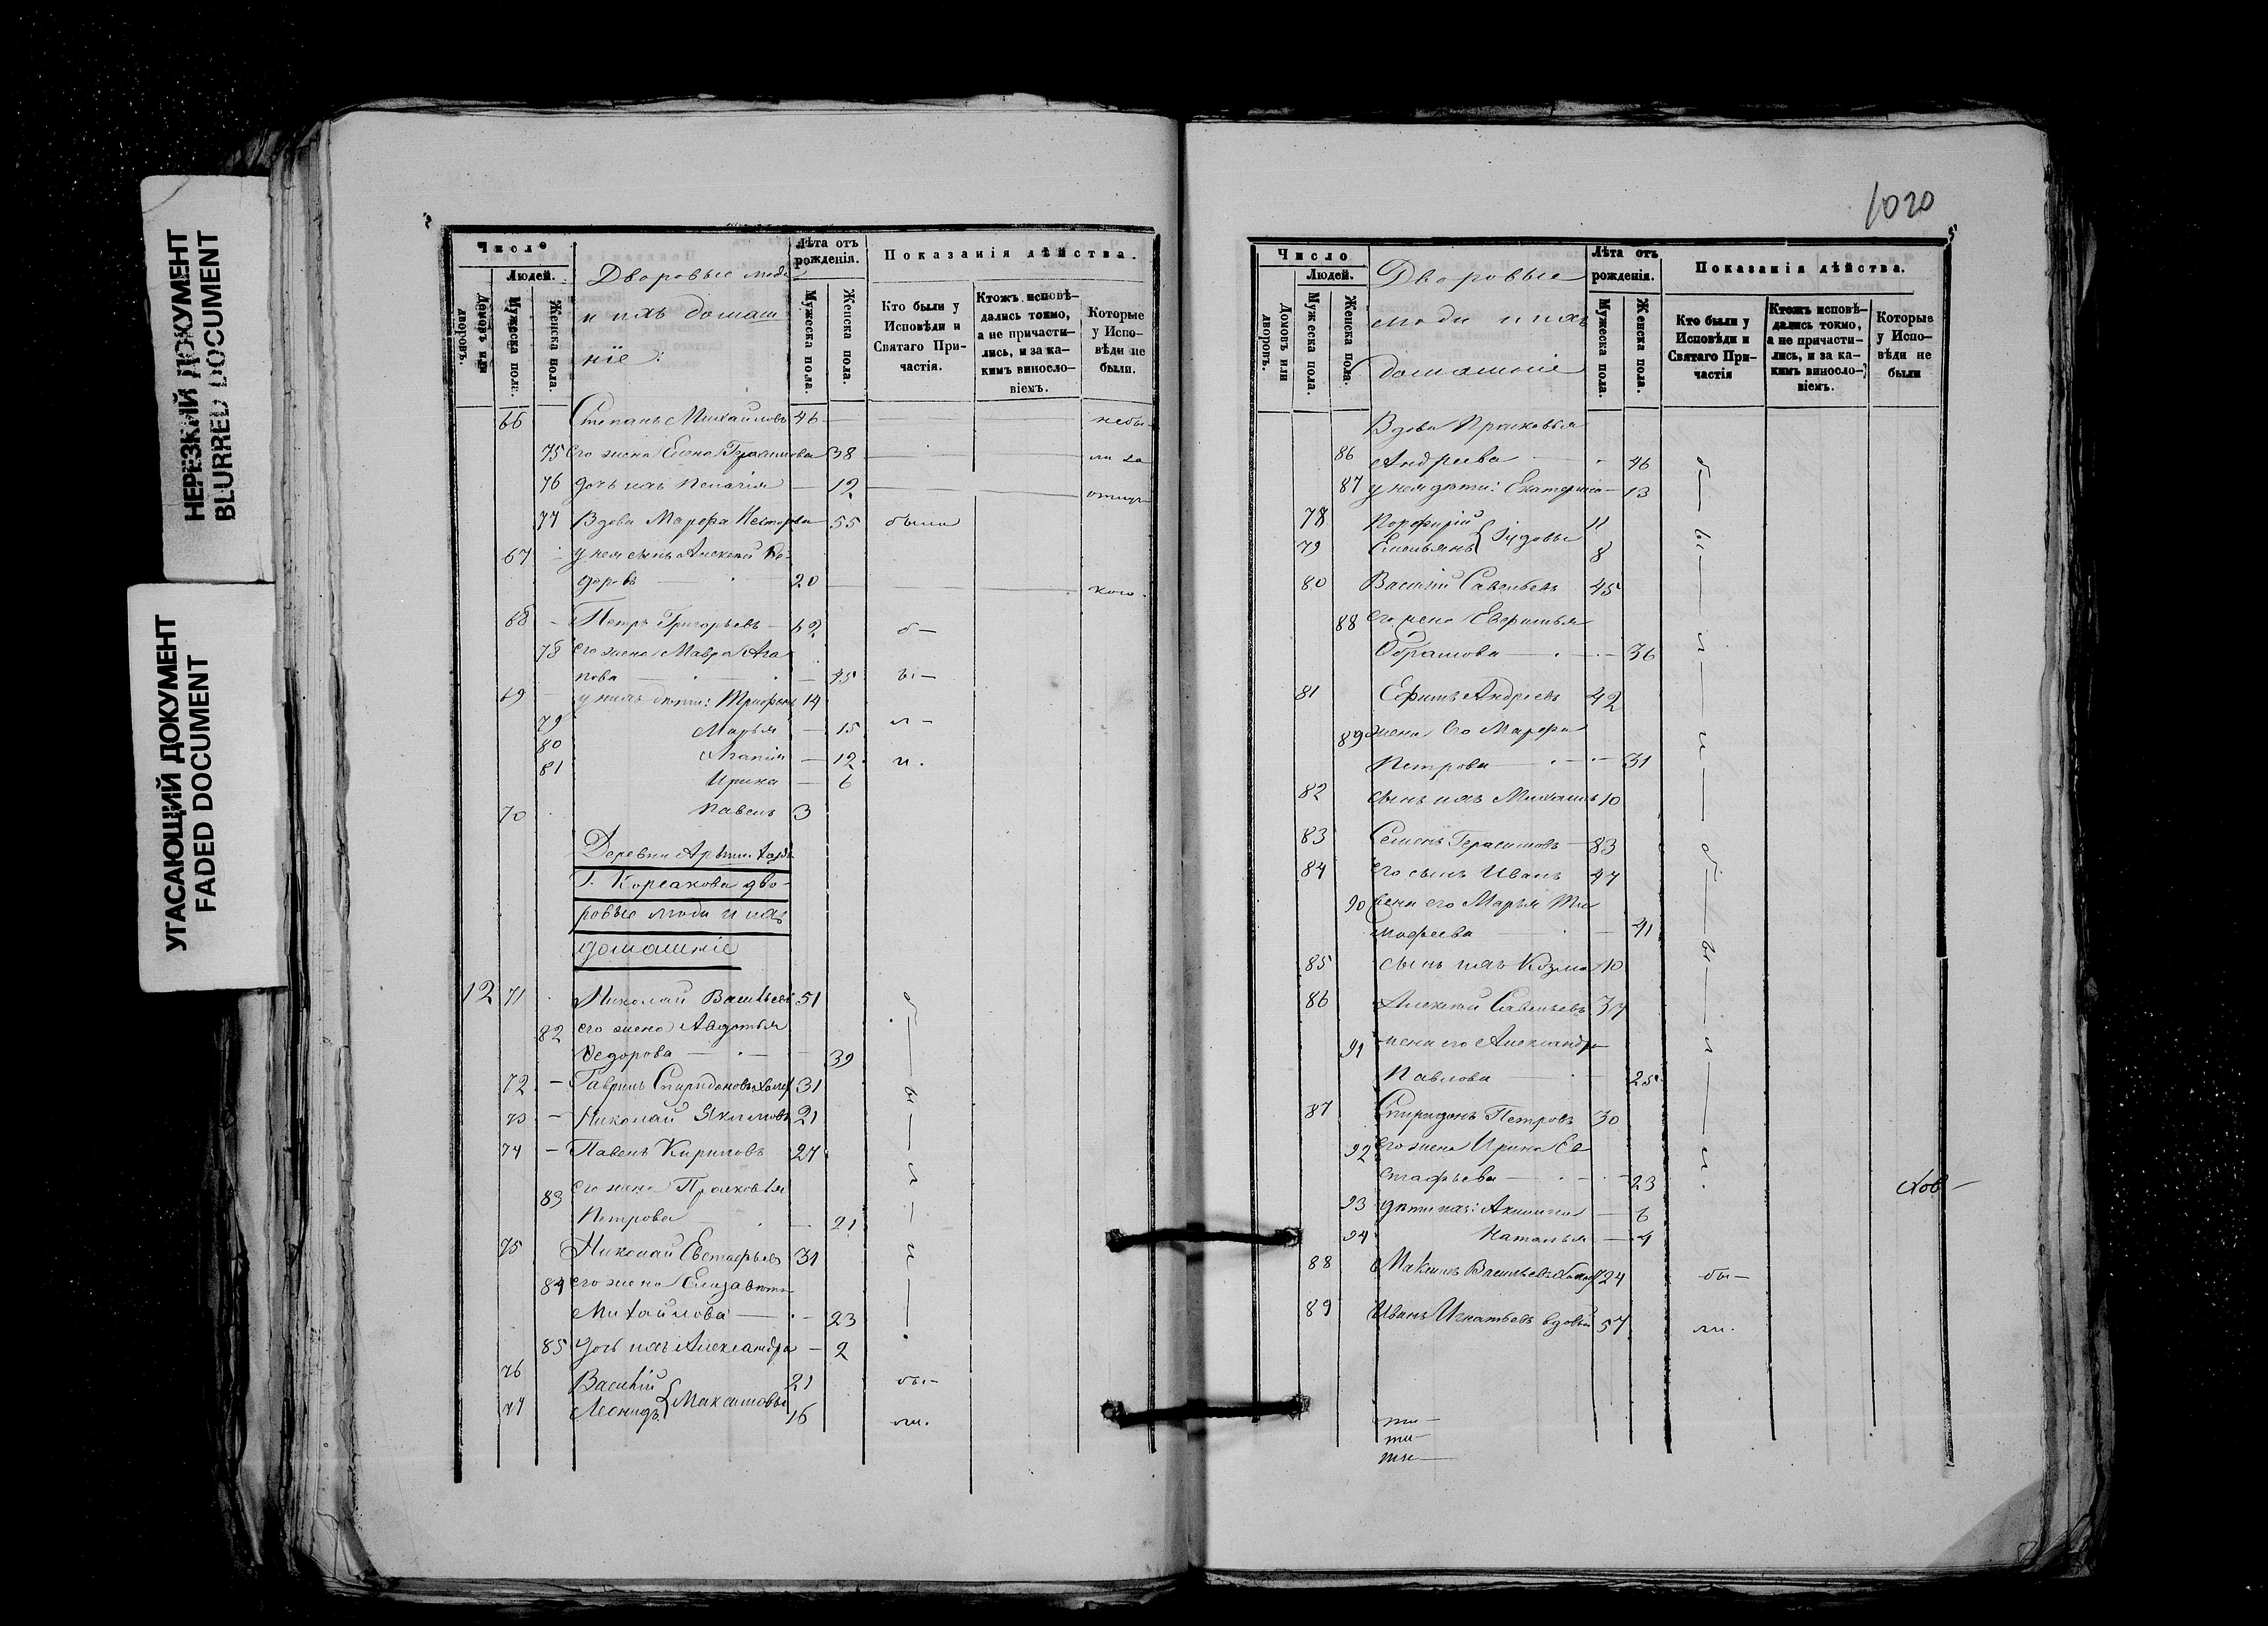 НЕРЕЗКИЙ ДОКУМЕНТ
BLURRED DOCUMENT
УГАСАЮЩИЙ ДОКУМЕНТ
FADED DOCUMENT
Число
Людей.
Домовъ или дворовъ.
Мужеска пола.
Женска пола.
Дворовые люди
и ихъ домаш
ніе:
Лѣта отъ рожденія.
Мужеска пола.
Женска пола.
Показанія дѣйства.
Кто были у
Исповѣди и
Святаго При-
частія.
Ктожъ исповѣ-
дались токмо,
а не причасти-
лись, и за ка-
кимъ виносло-
віемъ.
Которые
у Испо-
вѣди не
были.
66 Степанъ Михайловъ 46 — небы-
75 его жена Елена Герасимова 38 — ли за
76 дочь ихъ Пелагія — 12 —
77 Вдова Марфа Несторова 55 были
67 у нея сынъ Алексѣй Ѳе-
доровъ — 20 —
68 - Петръ Григорьевъ - 62 б-
78 его жена Мавра Ага
пова — 45 ы-
69 у нихъ дѣти: Трифонъ 14
79 Марья — 15 л-
80 Агапія — 12 и.
81 Ирина — 6
70 Павелъ 3
Деревни
Г. Корсакова дво-
ровые люди и ихъ
домашніе
12 71 Николай Васильевъ 51 б
82 его жена Авдотья
Ѳедорова — 39
72 - Гаврилъ Спиридоновъ холос 31 ы
73 - Николай Якимовъ 21
74 - Павелъ Кириловъ 27 л
83 его жена Прасковья
Петрова — 21
75 Николай Евстафьевъ 31 и
84 его жена Елизавета
Михайлова — 23
85 дочь ихъ Александра — 2
76 Василій 21 бы-
77 Леонидъ { Максимовы 16 ли.
1020
5
Число
Людей.
Домовъ или дворовъ.
Мужеска пола.
Женска пола.
Дворовые
люди и ихъ
домашніе
Лѣта отъ
рожденія.
Мужеска пола.
Женска пола.
Показанія дѣйства.
Кто были у
Исповѣди и
Святаго При-
частія
Ктожъ исповѣ-
дались токмо,
а не причасти-
лись, и за ка-
кимъ виносло-
віемъ.
Которые
у Испо-
вѣди не
были
Вдова Прасковья
86 Андреева — 46 б
87 у нея дѣти: Екатерина — 13
78 Порфирій 11
79 Емельянъ { Іудовы 8 ы
80 Василій Савельевъ 45
88 его жена Евфимья
Абрамова — 36 л
81 Ефимъ Андреевъ 42
89 жена его Марфа
Петрова — 31 и
82 сынъ ихъ Михаилъ 10
83 Семенъ Герасимовъ — 83 б
84 его сынъ Иванъ 47
90 жена его Марья Ти
мофеева — 41 ы
85 сынъ ихъ Козма 10
86 Алексѣй Савельевъ 37
91 жена его Александра л
Павлова — 25
87 Спиридонъ Петровъ 30
92 его жена Ирина Ев
стафьева — 23 и.
93 дѣти ихъ: Акилина — 6
94 Наталья — 4
88 Максимъ Васильевъ холос 24 бы-
89 Иванъ Игнатьевъ вдовый 57 ли.